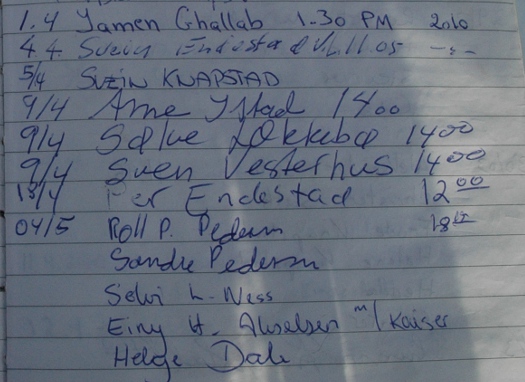 1.4 Yamen Ghallab 1.30 PM 2010
4.4. Svein Endestad kl. 11.05 -"-
5/4 SVEIN KNAPSTAD
9/4 Arne Ystad 14 00
9/4 Salve Løkkebø 14 00
9/4 Sven Vesterhus 14 00
13/4 Per Endestad 12 00
04/5 Rolf P. Pedersen
Sandre Pedersen
Selvi L. Ness
Einy H. m/ Kaiser
Helge Dale